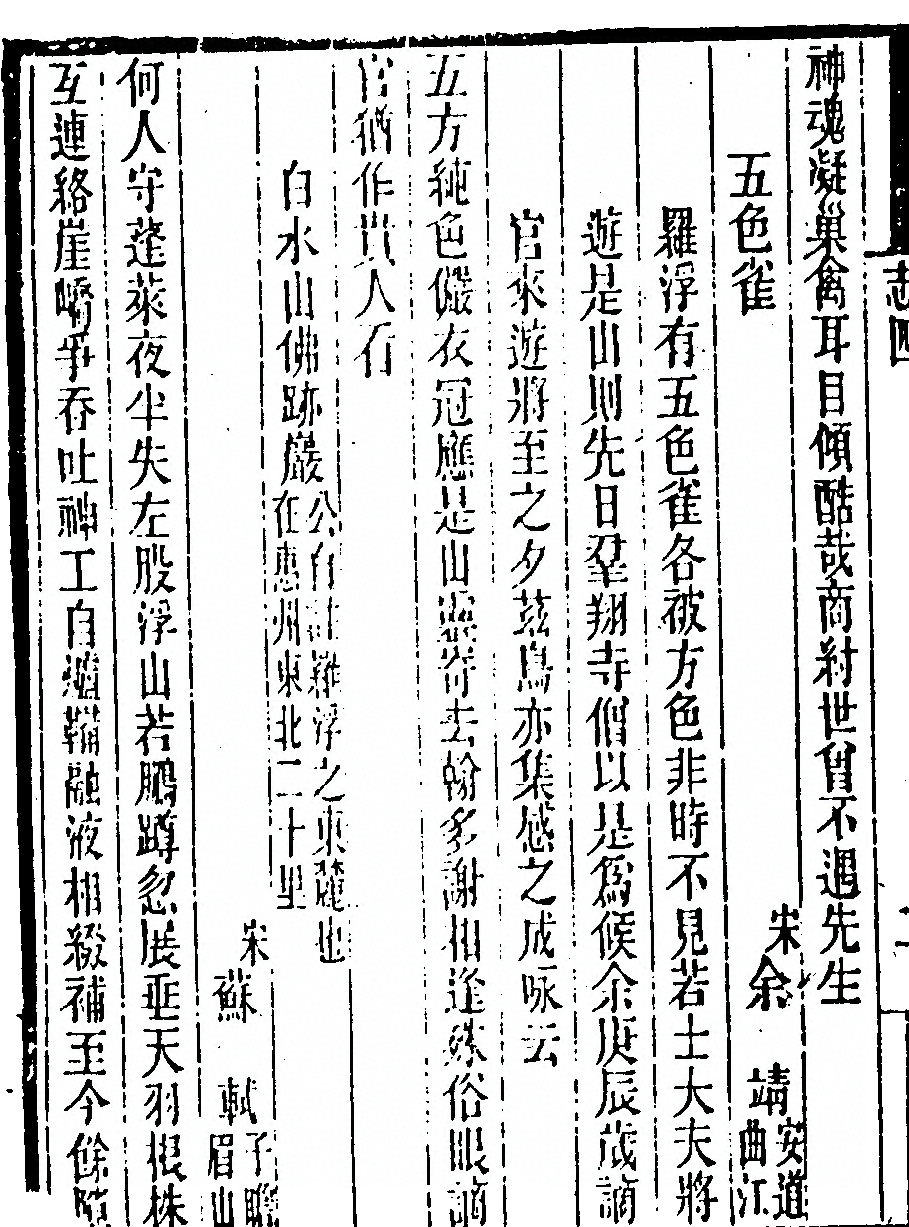 神魂凝巢禽耳目傾酷哉商紂世曾不遇先生
五色雀
宋余靖安道曲江
羅浮有五色雀各被方色非時不見若士大夫將
遊是山則先日羣翔寺僧以是爲候余庚辰歲謫
官來遊將至之夕茲鳥亦集感之成咏云
五方純色儼衣冠應是山靈寄去翰多謝相逢殊俗眼謫
官猶作貴人看
白水山佛跡巖
公自註羅浮之東麓也
在惠州東北二十里
宋蘇軾子瞻眉山
何人守蓬萊夜半失左股浮山若鵬蹲忽展垂天羽根株
互連絡崖嶠爭吞吐神工自爐鞴融液相綴補至今餘隙
志四